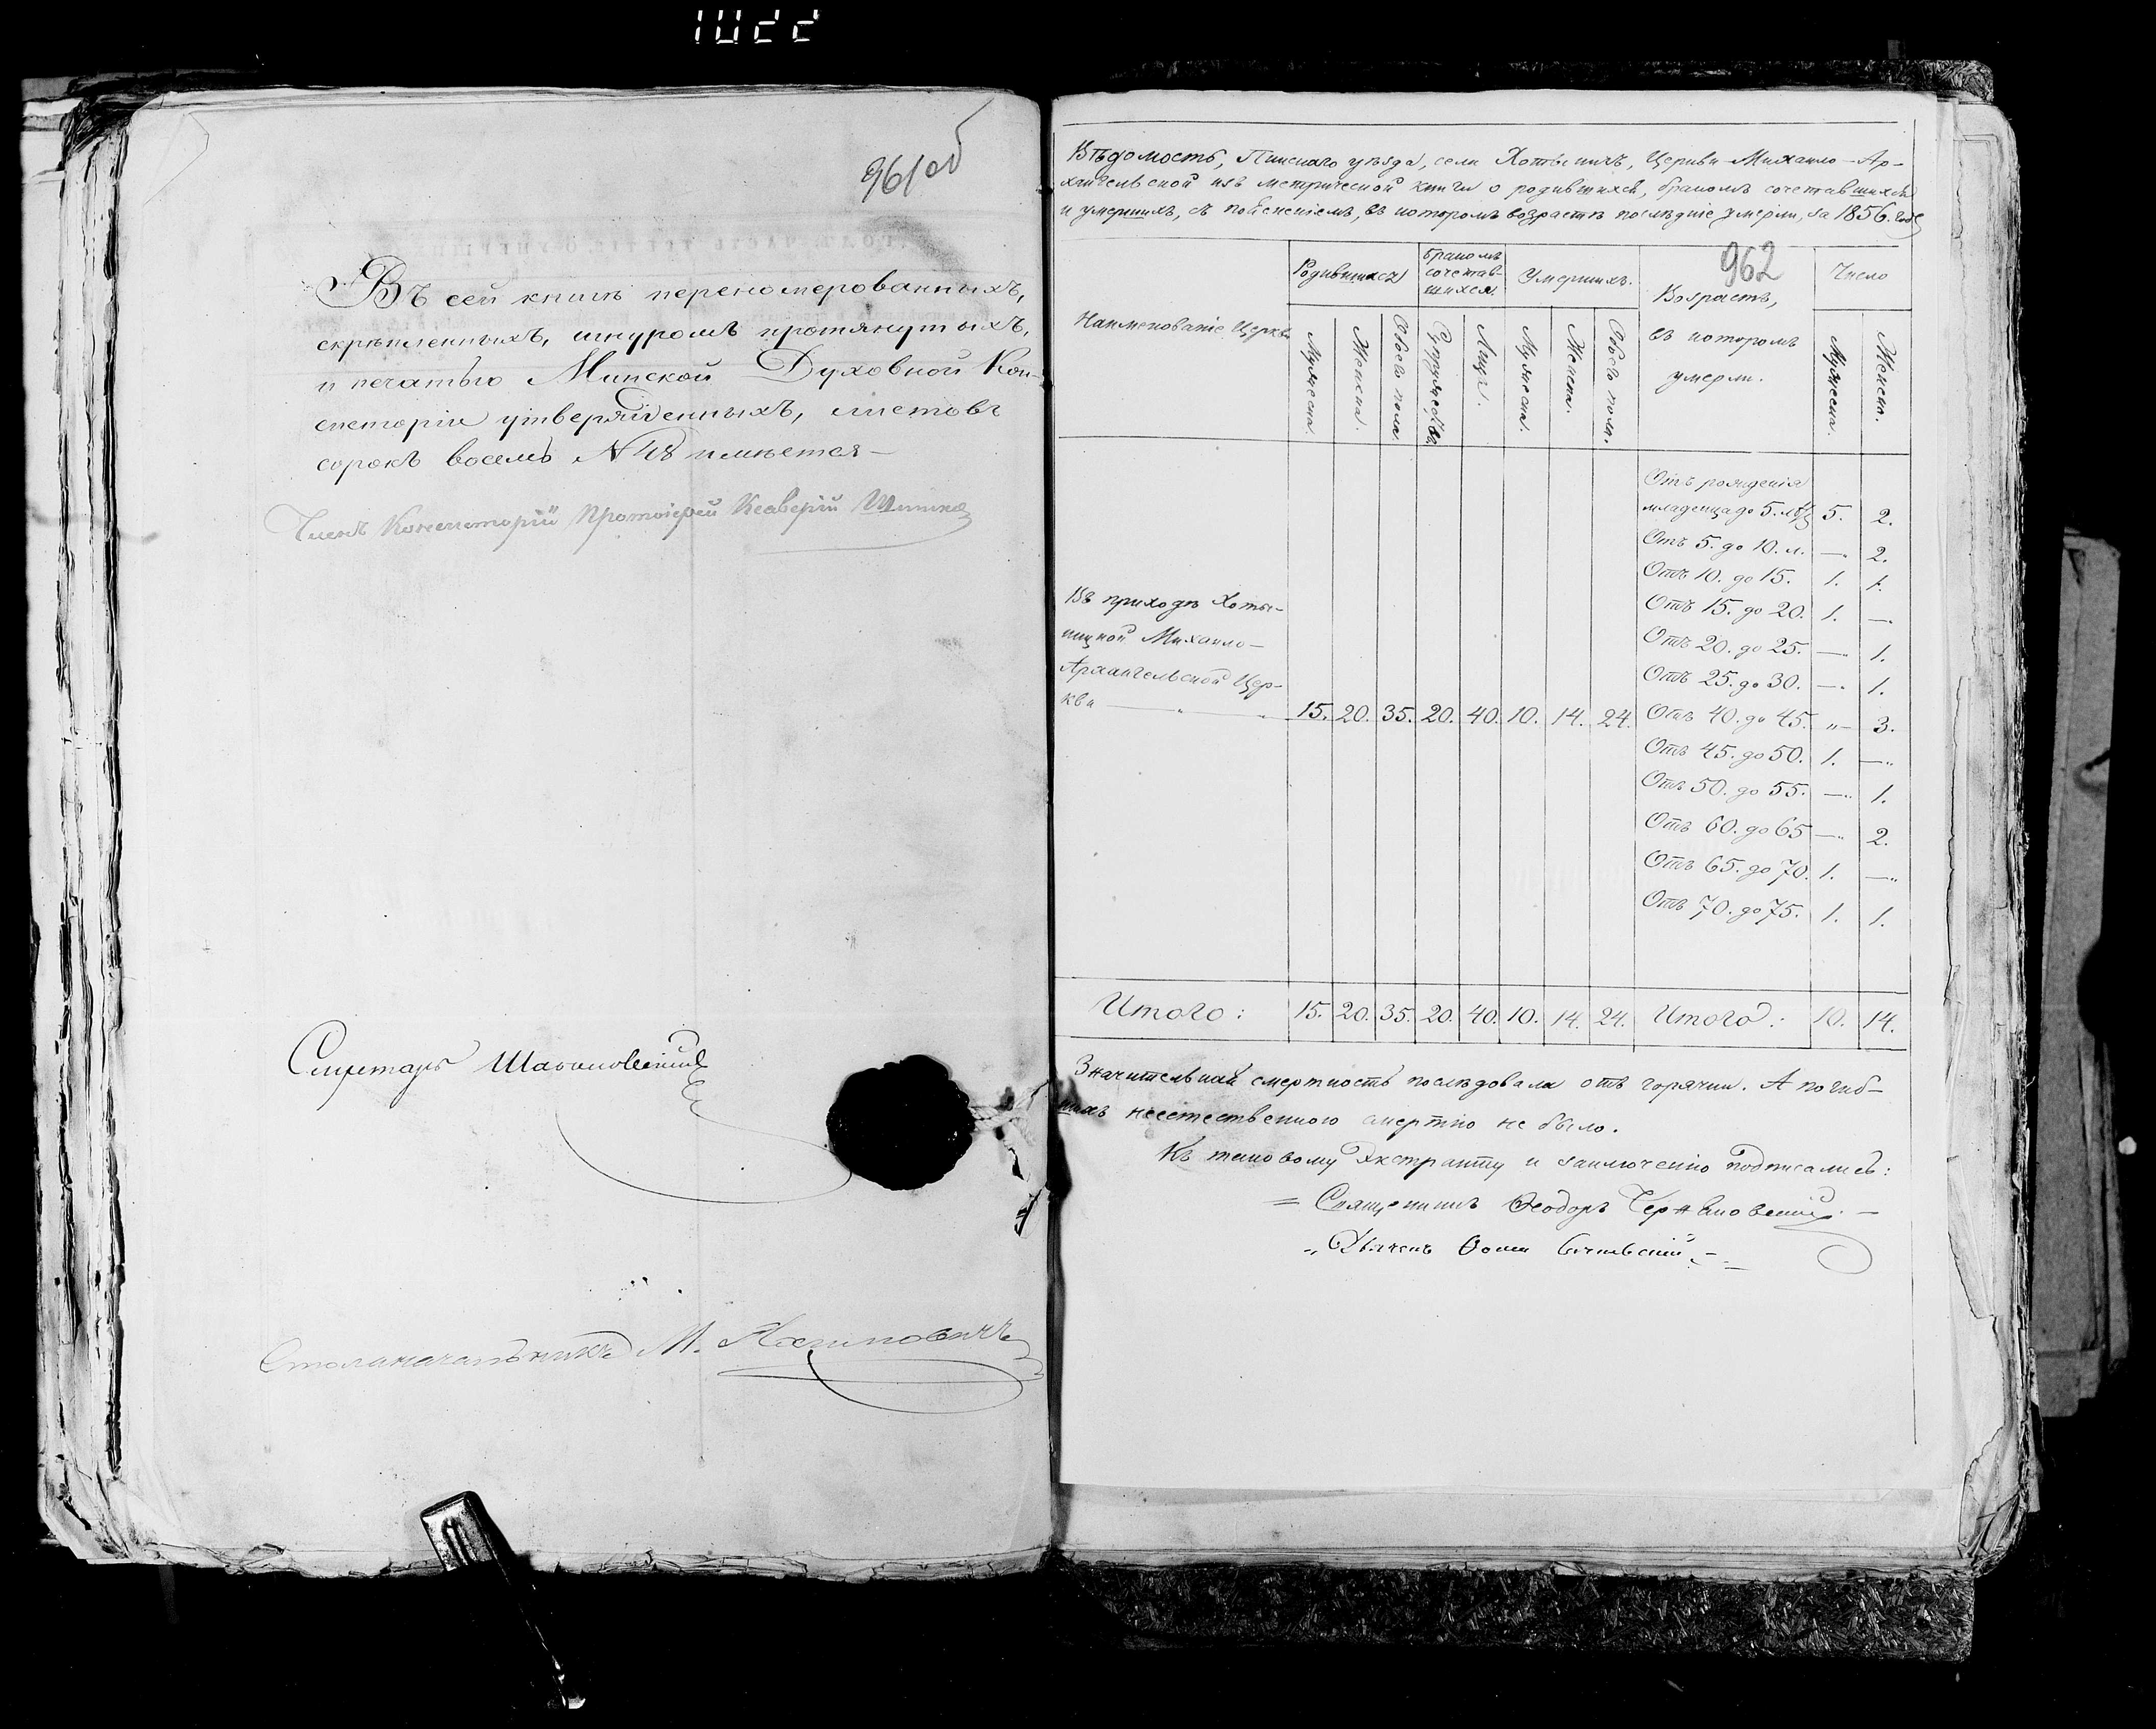 1022
961об
Въ сей книгѣ перенумерованныхъ,
скрѣпленныхъ, шнуромъ протянутыхъ,
и печатью Минской Духовной Кон-
систоріи утвержденныхъ, листовъ
сорокъ восемь № 48 имѣется —
Членъ Консисторіи Протоіерей Ксаверій
Секретарь
Столоначальникъ М.
Вѣдомость, Пинскаго уѣзда, села Хотыничъ, Церкви Михаило-Ар-
хангельской изъ метрической книги о родившихся, бракомъ сочетавшихся
и умершихъ, съ поясненіемъ, въ которомъ возрастѣ послѣдніе умерли, за 1856. годъ
962
Наименованіе Церкви
Родившихся
Бракомъ сочетав-шихся.
Умершихъ.
Возрастъ, въ которомъ умерли.
Число
Мужеска.
Женска.
Обоего пола.
Супружества
Лицъ.
Мужеска.
Женска.
Обоего пола.
Мужеска.
Женск.
Отъ рожденія
младенца до 5. лѣтъ 5. 2.
Отъ 5. до 10. л. —„ 2.
Отъ 10. до 15. 1. 1.
Отъ 15. до 20. 1. —„
Отъ 20. до 25. —„ 1.
Отъ 25. до 30. —„ 1.
Въ приходѣ Хоты-
ницкой Михаило-
Архангельской Цер-
кви — „ — „ 15. 20. 35. 20. 40. 10. 14. 24. Отъ 40. до 45. „— 3.
Отъ 45. до 50. 1. —„
Отъ 50. до 55. —„ 1.
Отъ 60. до 65 —„ 2.
Отъ 65. до 70. 1. —„
Отъ 70. до 75. 1. 1.
Итого: 15. 20. 35. 20. 40. 10. 14. 24. Итого: 10. 14.
Значительная смертность послѣдовала отъ горячки. А погиб-
шихъ неестественною смертію не было.
Къ таковому Экстракту и заключенію подписались:
= Священникъ Ѳеодоръ —
„ Дьячекъ